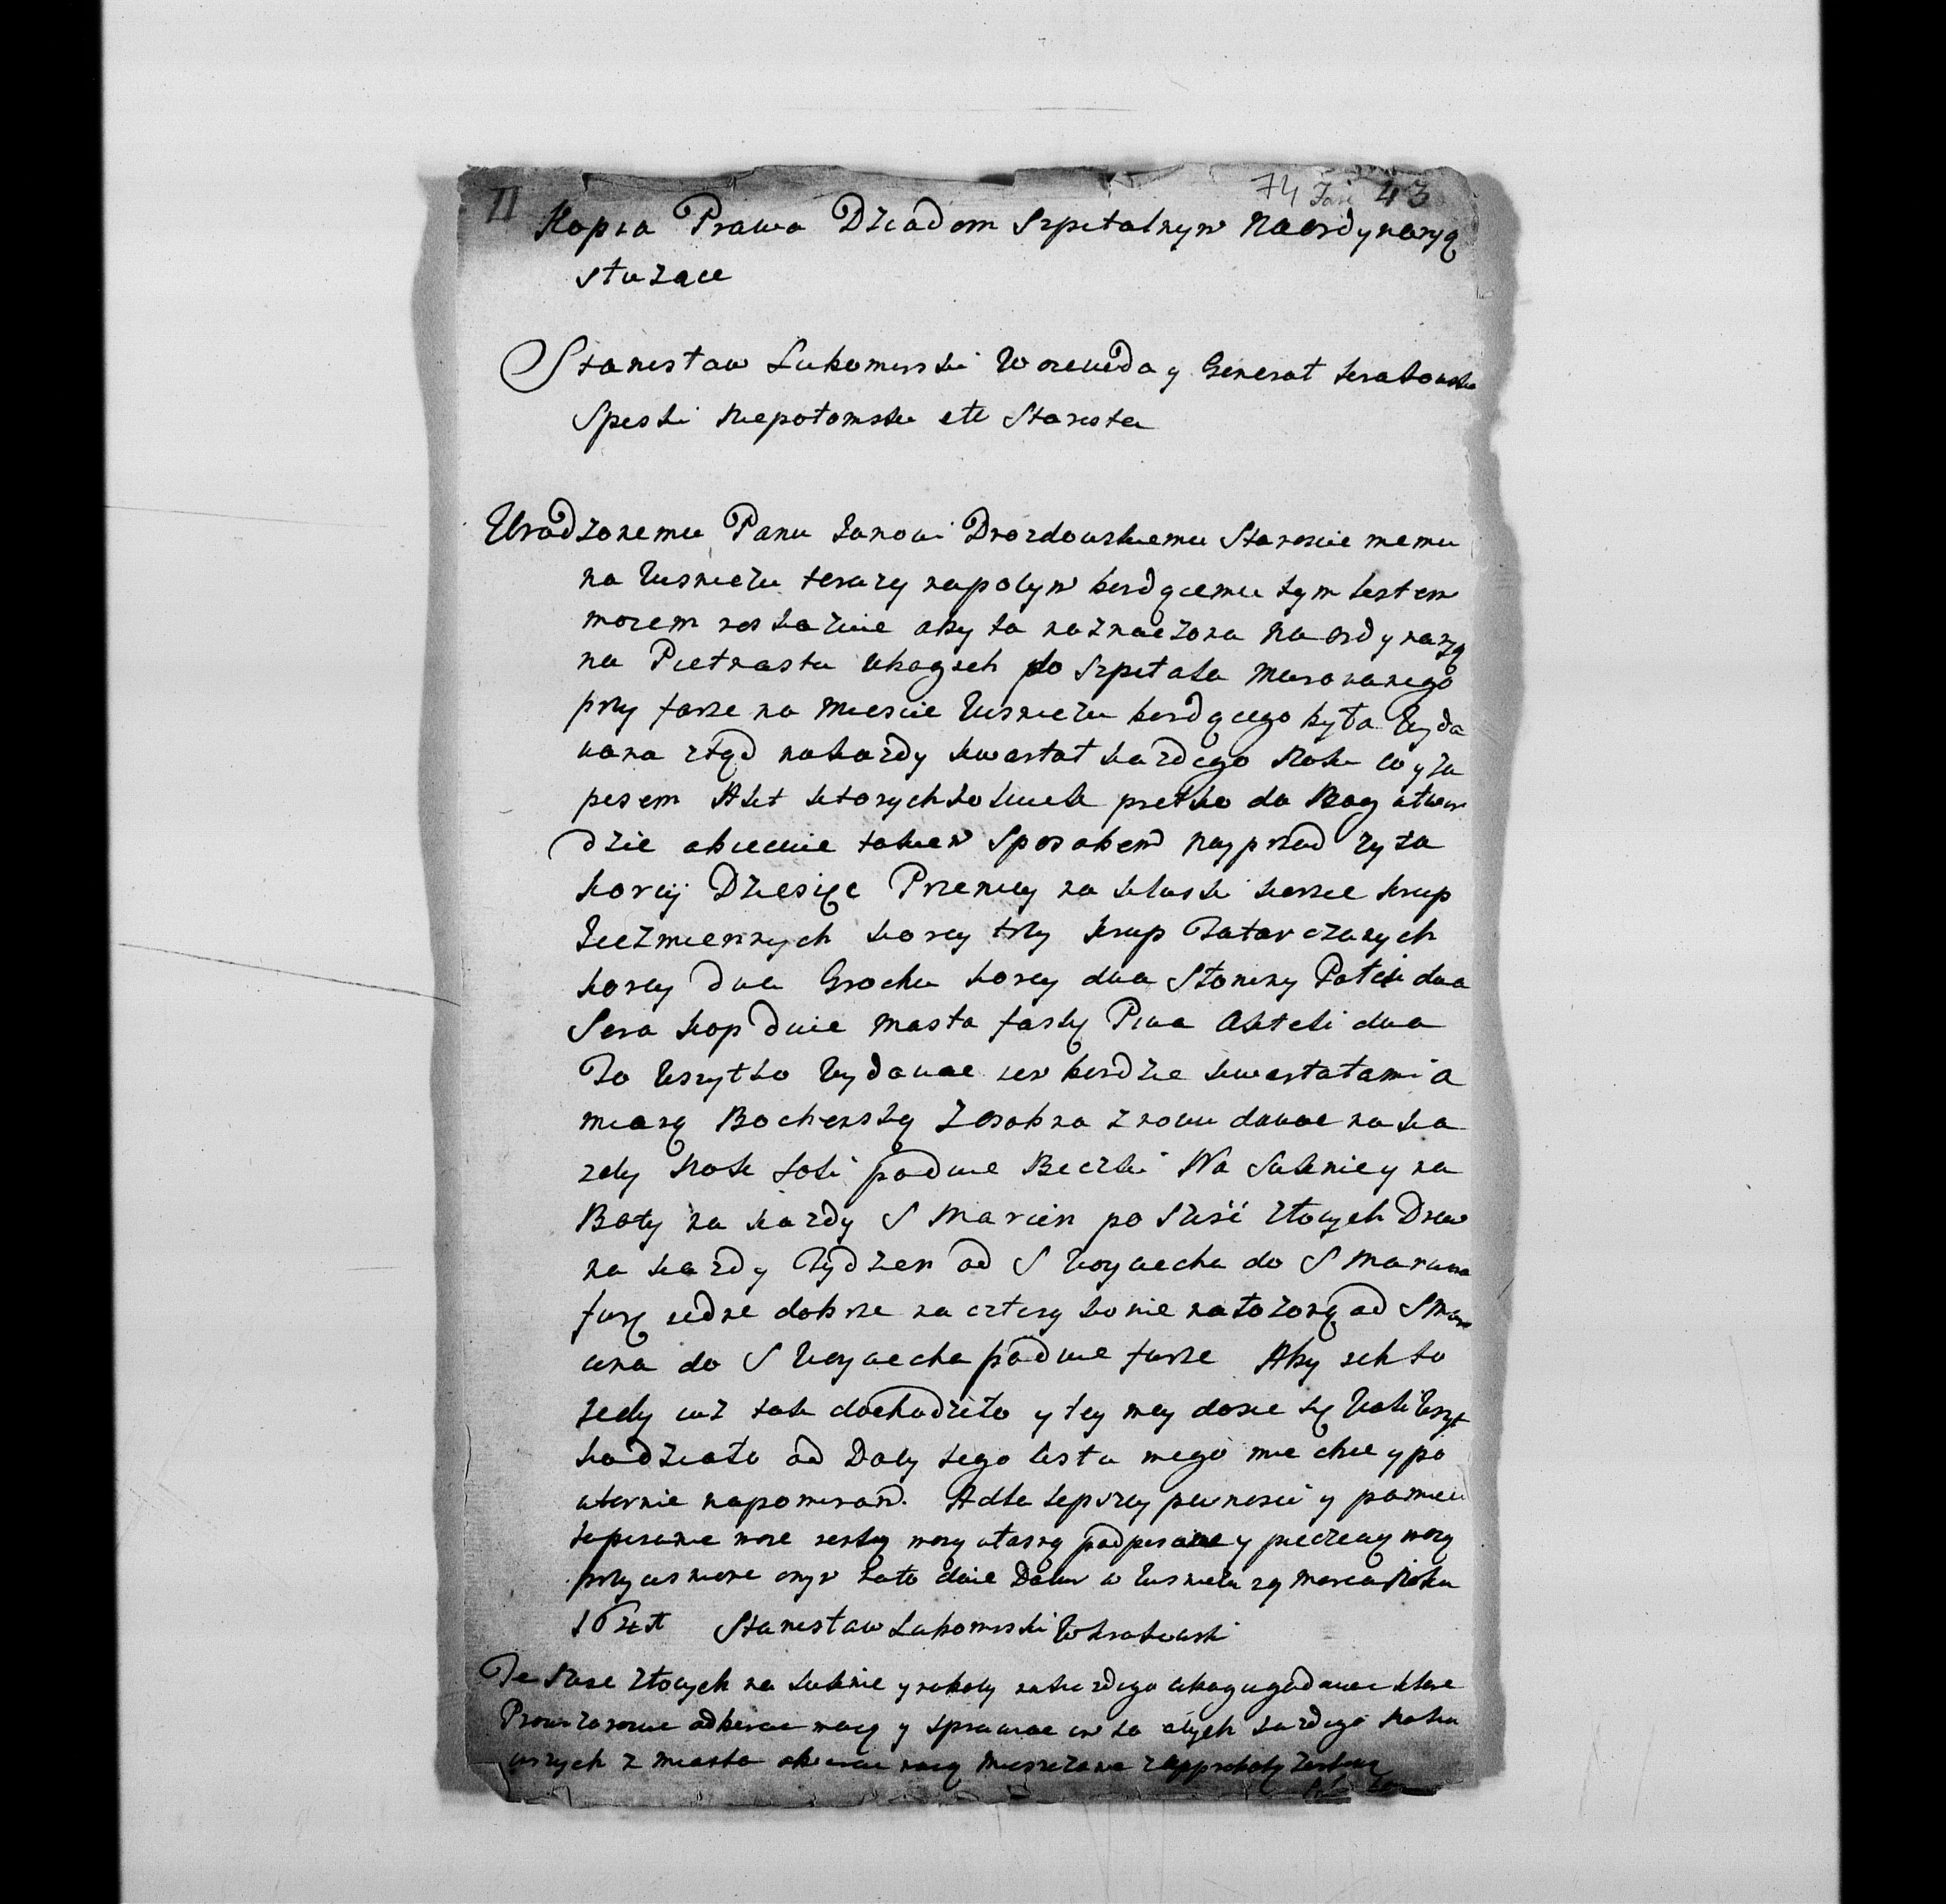 11
74 Fasc 43
Kopia Prawa Dziadom Szpitalnym Na ordynaryą
służące
Stanisław Lubomirski Woiewoda y Generał krakowski
Spiski Niepołomski etc Starosta
Urodzonemu Panu Janowi Drozdowskiemu Staroscie memu
na Wisniczu terazy napotym będącemu tym listem
moiem roskazuie aby ta naznaczona Na ordynaryą
na Pietnastu ubogich do Szpitala Murowanego
przy farze na Miescie Wisniczu będącego była Wyda
wana ztąd nakazdy kwartał kazdego Roku
pisem których kolwiek pretko da Bog
dzie obiecuie takiem Sposobem Nayprzod zyta
korcy Dziesięc Przenicy na kluski korzec krup
Jeczmiennych korcy trzy krup Tatarczanych
korcy dwa Grochu korcy dwa Słoniny Połcie dwa
Sera kop dwie Masła faskę Piwa Achteli dwa
To Wszytko Wydawac się będzie kwartałami a
miarą Bochenską Zosobna znowu dawac na ka
zdy Rok Soli po dwie Beczki Na Suknie y na
Boty na kazdy S Marcin po Szesć złotych Drew
na kazdy Tydzien od S Woyciecha do S Marcina
furę iedne dobrze na cztery konie nałozoną od S Mar
cina do S Woyciecha po dwie furze Aby ich to
tedy iuz tak dochodziło y tey mey dosic się Woli Wszyt
ko działo od Daty tego listu mego miec chce y po
wtornie napominam. A dla lepszey pewnosci y pamieci
te pisanie moie ręką moią własną podpisane y pieczecią moią
przycisnione onym na to daie Datum w Wisniczu Marca Roku
Stanisław Lubomirski W krakowski
Te Szesc złotych na Suknie y na boty na kazdego ubogiego dawac
Prowizorowie odbierac maią y sprawiac im za tych kazdego Roku
z Miasta obierac maią Mieszczanie z